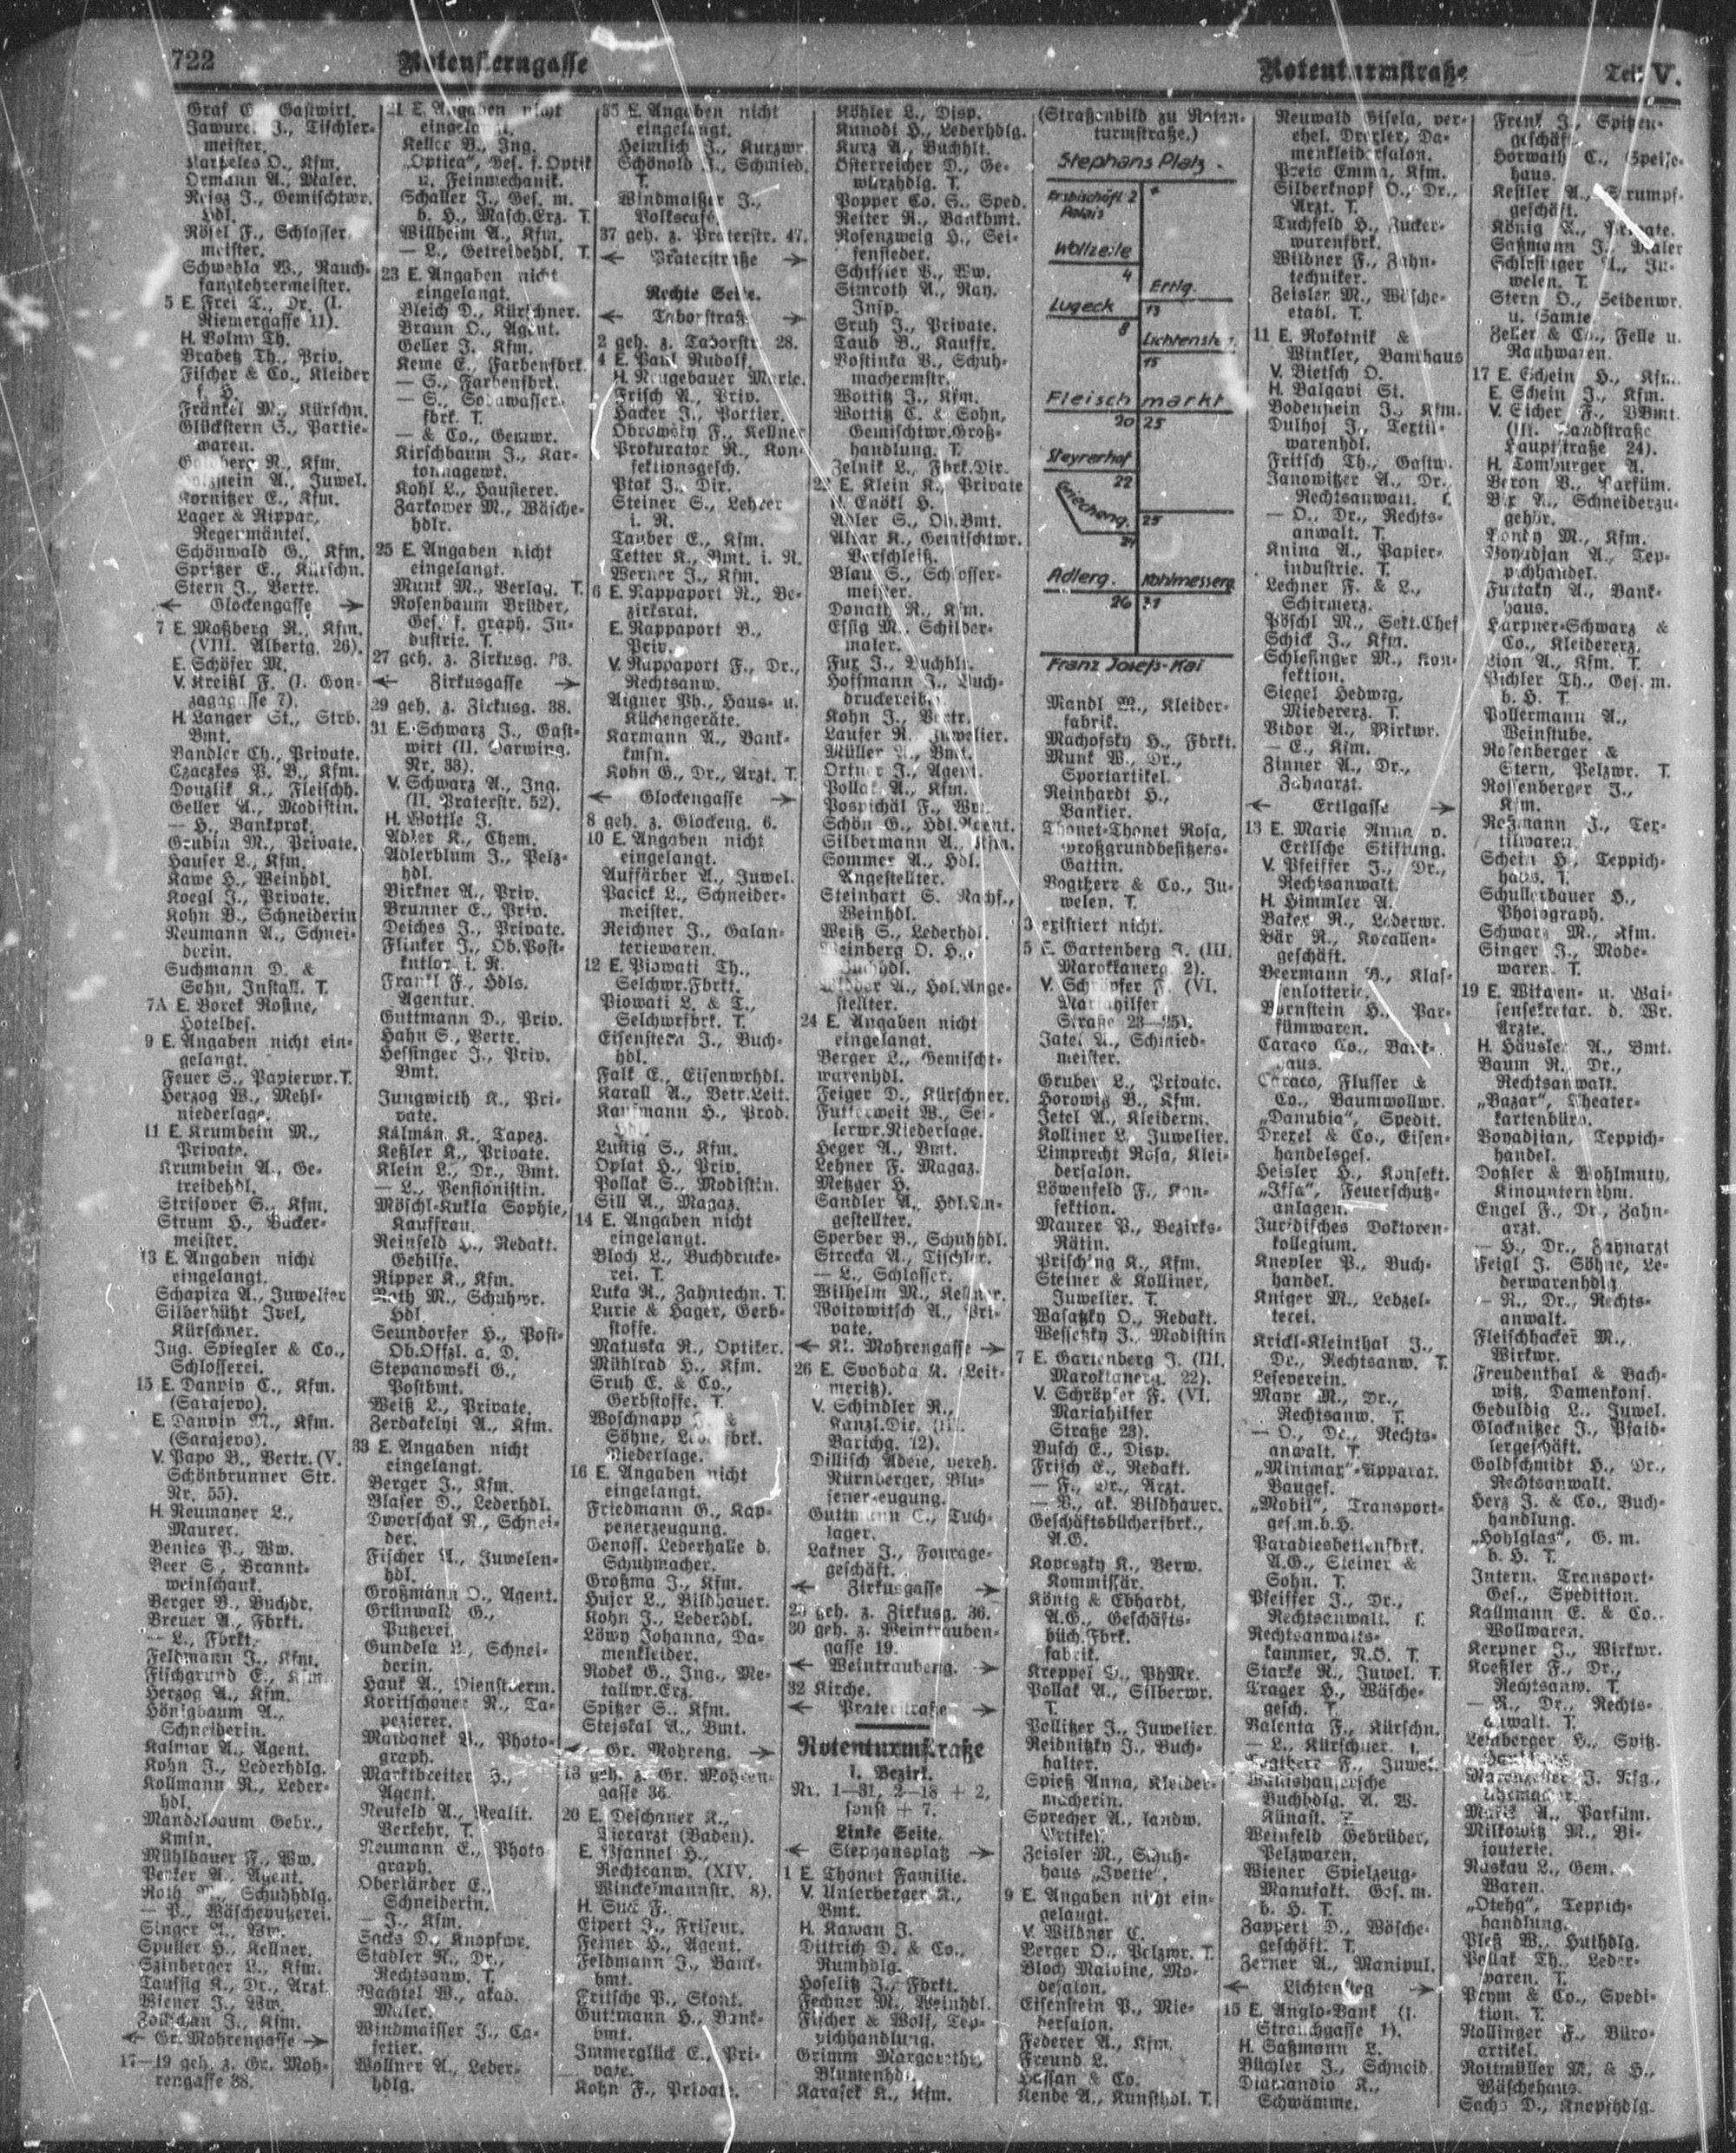 722
Rotensterngasse
Rotenturmstraße
Teil V.
Graf Gastwirt.
Jawurek J., Tischler-
meister.
Karpeles O., Kfm.
Ormann A., Maler.
Reisz J., Gemischtwr.
Hdl.
Rösel F., Schlosser-
meister.
Schwehla W., Rauch-
fangkehrermeister.
5 E. Frei T., Dr. (I.
Riemergasse 11).
H. Volny Th.
Brabetz Th., Priv.
Fischer & Co., Kleider
f. H.
Fränkel M., Kürschn.
Glückstern S., Partie-
waren.
Goldberg R., Kfm.
Holzstein A., Juwel.
Kornitzer E., Kfm.
Lager & Rippar,
Regenmäntel.
Schönwald G., Kfm.
Spritzer E., Kürschn.
Stern J., Vertr.
← Glockengasse →
7 E. Maßberg R., Kfm.
(VIII. Albertg. 26).
E. Schöfer M.
V. Kreißl F. (I. Gon-
zagagasse 7).
H. Langer St., Strb.
Bmt.
Bandler Ch., Private.
Czaczkes P. B., Kfm.
Douzlik K., Fleischh.
Geller A., Modistin.
— H., Bankprok.
Grubin M., Private.
Hauser L., Kfm.
Kawe H., Weinhdl.
Koegl J., Private.
Kohn B., Schneiderin
Neumann A., Schnei-
derin.
Suchmann D. &
Sohn, Install. T.
7A E. Borek Rosine,
Hotelbes.
9 E. Angaben nicht ein-
gelangt.
Feuer S., Papierwr. T.
Herzog W., Mehl-
niederlage.
11 E. Krumbein M.,
Private.
Krumbein A., Ge-
treidehdl.
Strisover S., Kfm.
Strum H., Bäcker-
meister.
13 E. Angaben nicht
eingelangt.
Schapira A., Juwelier
Silberhütz Joel,
Kürschner.
Jng. Spiegler & Co.,
Schlosserei.
15 E. Danviv C., Kfm.
(Sarajevo).
E. Danviv M., Kfm.
(Sarajevo).
V. Papo B., Vertr. (V.
Schönbrunner Str.
Nr. 55).
H. Neumayer L.,
Maurer.
Benies P., Ww.
Beer S., Brannt-
weinschank.
Berger B., Buchdr.
Breuer A., Fbrkt.
— L., Fbrkt.
Feldmann J., Kfm.
Fischgrund E., Kfm.
Herzog A., Kfm.
Hönigbaum A.,
Schneiderin.
Kalmar A., Agent.
Kohn J., Lederhdlg.
Kollmann R., Leder-
hdl.
Mandelbaum Gebr.,
Kmsn.
Mühlbauer F., Ww.
Perker A., Agent.
Roth Schuhhdlg.
— P., Wäscheputzerei.
Singer Ww.
Spuller H., Kellner.
Szinberger L., Kfm.
Taussig K., Dr., Arzt.
Wiener J., Ww.
Zollschan J., Kfm.
← Gr. Mohrengasse →
17—19 geh. z. Gr. Moh-
rengasse 38.
21 E. Angaben nicht
eingelangt.
Keller B., Ing.
„Optica“, Ges. f. Optik
u. Feinmechanik.
Schaller J., Ges. m.
b. H., Masch.Erz. T.
Willheim A., Kfm.
— L., Getreidehdl. T.
23 E. Angaben nicht
eingelangt.
Bleich D., Kürschner.
Braun O., Agent.
Geller J. Kfm.
Keme E., Farbensbrt.
— S., Farbensbrt.
— S., Sodawasser-
fbrk. T.
— & Co., Gemwr.
Kirschbaum J., Kar-
tonnagewr.
Kohl L., Hausierer.
Zarkower M., Wäsche-
hdlr.
25 E. Angaben nicht
eingelangt.
Munk M., Verlag. T.
Rosenbaum Brüder,
Ges. f. graph. In-
dustrie. T.
27 geh. z. Zirkusg. 33.
← Zirkusgasse →
29 geh. z. Zirkusg. 38.
31 E. Schwarz J., Gast-
wirt (II. Darwing.
Nr. 33).
V. Schwarz A., Ing.
(II. Praterstr. 52).
H. Wottle J.
Adler K., Chem.
Adlerblum J., Pelz-
hdl.
Birkner A., Priv.
Brunner E., Priv.
Deiches J., Private.
Flinker J., Ob.Post-
kntlor. i. R.
Frankl F., Hdls.
Agentur.
Guttmann D., Priv.
Hahn S., Vertr.
Hessinger J., Priv.
Bmt.
Jungwirth K., Pri-
vate.
Kálmán K., Tapez.
Keßler K., Private.
Klein L., Dr., Bmt.
— L., Pensionistin.
Möschl-Kukla Sophie,
Kauffrau.
Reinfeld Redakt.
Gehilfe.
Ripper K., Kfm.
Roth M., Schuhwr.
Hdl.
Seundorfer H., Post-
Ob.Offzl. a. D.
Stepanowski G.,
Postbmt.
Weiß L., Private.
Zerdakelyi A., Kfm.
33 E. Angaben nicht
eingelangt.
Berger J., Kfm.
Blaser D., Lederhdl.
Dworschak R., Schnei-
der.
Fischer A., Juwelen-
hdl.
Großmann O., Agent.
Grünwald G.,
Putzerei.
Gundela Schnei-
derin.
Hauk A., Dienstherm.
Koritschoner R., Ta-
pezierer.
Maidanek Photo-
graph.
Marktbreiter H.,
Agent.
Neufeld A., Realit.
Verkehr, T.
Neumann E., Photo-
graph.
Oberländer E.,
Schneiderin.
— J., Kfm.
Sacks D., Knopfwr.
Stadler R., Dr.,
Rechtsanw. T.
Wachtel W., akad.
Maler.
Windmaisser J., Ca-
fetier.
Wollner A., Leder-
hdlg.
35 E. Angaben nicht
eingelangt.
Heimlich J., Kurzwr.
Schönold J., Schmied.
T.
Windmaißer J.,
Volkscafé.
37 geh. z. Praterstr. 47.
← Praterstraße →
Rechte Seite.
← Taborstraße →
2 geh. z. Taborstr. 28.
4 E. Paul Rudolf.
H. Neugebauer Marie.
Frisch A., Priv.
Hacker J., Portier.
Obrowsky F., Kellner
Prokurator R., Kon-
fektionsgesch.
Ptak J., Dir.
Steiner S., Lehrer
i. R.
Tauber E., Kfm.
Tetter K., Bmt. i. R.
Werner J., Kfm.
6 E. Rappaport R., Be-
zirksrat.
E. Rappaport B.,
Priv.
V. Rappaport F., Dr.,
Rechtsanw.
Aigner Ph., Haus- u.
Küchengeräte.
Karmann A., Bank-
kmsn.
Kohn G., Dr., Arzt. T.
← Glockengasse →
8 geh. z. Glockeng. 6.
10 E. Angaben nicht
eingelangt.
Auffärber A., Juwel.
Pacick L., Schneider-
meister.
Reichner J., Galan-
teriewaren.
12 E. Piowati Th.,
Selchwr.Fbrkt.
Piowati L. & T.,
Selchwrfbrk. T.
Eisenstein J., Buch-
hdl.
Falk E., Eisenwrhdl.
Karall A., Betr.Leit.
Kaufmann H., Prod.
Hdl.
Lustig S., Kfm.
Oplat H., Priv.
Pollak S., Modistin.
Sill A., Magaz.
14 E. Angaben nicht
eingelangt.
Bloch L., Buchdrucke-
rei. T.
Luka R., Zahntechn. T.
Lurie & Hager, Gerb-
stoffe.
Matuska R., Optiker.
Mühlrad H., Kfm.
Sruh E. & Co.,
Gerbstoffe. T.
Woschnapp &
Söhne, Lederfbrk.
Niederlage.
16 E. Angaben nicht
eingelangt.
Friedmann G., Kap-
penerzeugung.
Genoss. Lederhalle d.
Schuhmacher.
Großma J., Kfm.
Huser L., Bildhauer.
Kohn J., Lederhdl.
Löwy Johanna, Da-
menkleider.
Rodek G., Ing., Me-
tallwr.Erz.
Spitzer S., Kfm.
Stejskal A., Bmt.
← Gr. Mohreng. →
18 geh. z. Gr. Mohren-
gasse 36.
20 E. Deschaner K.,
Tierarzt (Baden).
E. Pfannel H.,
Rechtsanw. (XIV.
Winckelmannstr. 8).
H. Suk F.
Eipert J., Friseur.
Feiner H., Agent.
Feldmann J., Bank-
bmt.
Fritsche P., Skont.
Guttmann H., Bank-
bmt.
Immerglück E., Pri-
vate.
Kohn F., Private.
Köhler L., Disp.
Kunodi H., Lederhdlg.
Kurz A., Buchhlt.
Österreicher D., Ge-
würzhdlg. T.
Popper Co. S., Sped.
Reiter R., Bankbmt.
Rosenzweig H., Sei-
fensieder.
Schiffer B., Ww.
Simroth A., Ray.
Insp.
Sruh J., Private.
Taub B., Kauffr.
Vostinka B., Schuh-
machermstr.
Wottitz J., Kfm.
Wottitz C. & Sohn,
Gemischtwr.Groß-
handlung. T.
Zelnik L., Fbrk.Dir.
22 E. Klein K., Private
H. Enökl H.
Adler S., Ob.Bmt.
Altar K., Gemischtwr.
Verschleiß.
Blau S., Schlosser-
meister.
Donath R., Kfm.
Essig M., Schilder-
maler.
Fux J., Buchhlt.
Hoffmann J., Buch-
druckereibes.
Kohn J., Vertr.
Laufer R., Juwelier.
Müller A., Bmt.
Ortner J., Agent.
Pollak A., Kfm.
Pospichäl F., Ww.
Schön G., Hdl.Agent.
Silbermann A., Kfm.
Sommer A., Hdl.
Angestellter.
Steinhart S. Nachf.,
Weinhdl.
Weiß S., Lederhdl.
Weinberg O. H.,
Buchhdl.
A., Hdl.Ange-
stellter.
24 E. Angaben nicht
eingelangt.
Berger L., Gemischt-
warenhdl.
Feiger D., Kürschner.
Futterweit W., Sei-
lerwr.Niederlage.
Heger A., Bmt.
Lehner F. Magaz.
Metzger H.
Sandler A., Hdl.An-
gestellter.
Sperber B., Schuhhdl.
Strecka A., Tischler.
— L., Schlosser.
Wilhelm M., Kellner.
Woitowitsch A., Pri-
vate.
← Kl. Mohrengasse →
26 E. Svoboda K. (Leit-
meritz).
V. Schindler R.,
Kanzl.Dir. (III.
Barichg. 12).
Dillisch Adele, vereh.
Nürnberger, Blu-
senerzeugung.
Guttmann C., Tuch-
lager.
Lakner J., Fourage-
geschäft.
← Zirkusgasse →
28 geh. z. Zirkusg. 36.
30 geh. z. Weintrauben-
gasse 19.
← Weintraubeng. →
32 Kirche.
← Praterstraße →
Rotenturmstraße
I. Bezirk.
Nr. 1—31, 2—18 + 2,
sonst + 7.
Linke Seite.
← Stephansplatz →
1 E. Thonet Familie.
V. Unterberger K.,
Bmt.
H. Kawan J.
Dittrich D. & Co.,
Rumhdlg.
Hoselitz J., Fbrkt.
Fechner M., Weinhdl.
Fischer & Wolf, Tep-
pichhandlung.
Grimm Margarethe,
Blumenhdl.
Karasek K., Kfm.
(Straßenbild zu Roten-
turmstraße.)
Stephans Platz
Erzbischöfl. 2
Palais
Wollzeile
4
Ertlg.
Lugeck
13
8
Lichtensteg
15
Fleisch markt
20 25
Steyrerhof
22
Griecheng.
25
24
Adlerg. Kohlmesserg.
26 31
Franz Josefs-Kai
Mandl M., Kleider-
fabrik.
Machofsky H., Fbrkt.
Munk W., Dr.,
Sportartikel.
Reinhardt H.,
Bankier.
Thonet-Thonet Rosa,
Großgrundbesitzers-
Gattin.
Vogtherr & Co., Ju-
welen. T.
3 existiert nicht.
5 E. Gartenberg J. (III.
Marokkanerg. 2).
V. Schröpfer F. (VI.
Mariahilfer
Straße 23—25).
Jatel A., Schmied-
meister.
Gruber L., Private.
Horowitz B., Kfm.
Jetel A., Kleiderm.
Kolliner L., Juwelier.
Limprecht Rosa, Klei-
dersalon.
Löwenfeld F., Kon-
fektion.
Maurer P., Bezirks-
Rätin.
Prisching K., Kfm.
Steiner & Kolliner,
Juwelier. T.
Wasatzky O., Redakt.
Wessetzky J., Modistin
7 E. Gartenberg J. (III.
Marokkanerg. 22).
V. Schröpfer F. (VI.
Mariahilfer
Straße 23).
Busch E., Disp.
Frisch E., Redakt.
— F., Dr., Arzt.
— V., ak. Bildhauer.
Geschäftsbücherfbrk.,
A.G.
Kopeszky K., Verw.
Kommissär.
König & Ebhardt,
A.G., Geschäfts-
büch.Fbrk.
fabrik.
Kreppel PhMr.
Pollak A., Silberwr.
T.
Pollitzer J., Juwelier.
Reidnitzky J., Buch-
halter.
Spieß Anna, Kleider-
macherin.
Sprecher A., landw.
Artikel.
Zeisler M., Schuh-
haus „Ivette“.
9 E. Angaben nicht ein-
gelangt.
V. Wildner C.
Berger O., Pelzwr. T.
Bloch Malvine, Mo-
desalon.
Eisenstein P., Mie-
dersalon.
Federer A., Kfm.
Freund L.
Hassan & Co.
Kende A., Kunsthdl. T.
Neuwald Gisela, ver-
ehel. Drexler, Da-
menkleidersalon.
Preis Emma, Kfm.
Silberknopf O., Dr.,
Arzt. T.
Tuchfeld H., Zucker-
warenfbrk.
Wildner F., Zahn-
techniker.
Zeisler M., Wäsche-
etabl. T.
11 E. Rokotnik &
Winkler, Bankhaus
V. Bietsch O.
H. Balgavi St.
Bodenstein J., Kfm.
Dulhof J., Textil-
warenhdl.
Fritsch Th., Gastw.
Janowitzer A., Dr.,
Rechtsanwalt. T.
— O., Dr., Rechts-
anwalt. T.
Knina A., Papier-
industrie. T.
Lechner F. & L.,
Schirmerz.
Pöschl M., Sekt.Chef
Schick J., Kfm.
Schlesinger M., Kon-
fektion.
Siegel Hedwig,
Miedererz. T.
Vidor A., Wirkwr.
— E., Kfm.
Zinner A., Dr.,
Zahnarzt.
← Ertlgasse →
13 E. Marie Anna v.
Ertlsche Stiftung.
V. Pfeiffer J., Dr.,
Rechtsanwalt.
H. Himmler A.
Baker R., Lederwr.
Bär R., Korallen-
geschäft.
Beermann B., Klas-
senlotterie.
Bornstein H., Par-
fümwaren.
Caraco Co., Bank-
haus.
Caraco, Flusser &
Co., Baumwollwr.
„Danubia“, Spedit.
Drexel & Co., Eisen-
handelsges.
Heisler H., Konfekt.
„Ifsa“, Feuerschutz-
anlagen.
Juridisches Doktoren-
kollegium.
Knepler P., Buch-
handel.
Kniger M., Lebzel-
terei.
Krickl-Kleinthal J.,
Dr., Rechtsanw. T.
Leseverein.
Mayr M., Dr.,
Rechtsanw. T.
— O., Dr., Rechts-
anwalt. T.
„Minimax“-Apparat.
Bauges.
„Mobil“, Transport-
ges.m.b.H.
Paradiesbettenfbrk.
A.G., Steiner &
Sohn. T.
Pfeiffer J., Dr.,
Rechtsanwalt. T.
Rechtsanwalts-
kammer, N.Ö. T.
Starke R., Juwel. T.
Trager H., Wäsche-
gesch. T.
Valenta F., Kürschn.
— L., Kürschner. T.
Vogtherr F., Juwel.
Wallishaussersche
Buchhdlg. A. W.
Künast. T.
Weinfeld Gebrüder,
Pelzwaren.
Wiener Spielzeug-
Manufakt. Ges. m.
b. H. T.
Zappert D., Wäsche-
geschäft. T.
Zerner A., Manipul.
← Lichtensteg →
15 E. Anglo-Bank (I.
Strauchgasse 1).
H. Saßmann L.
Büchler J., Schneid.
Diamandio K.,
Schwämme.
Frenk J., Spitzen-
geschäft.
Horwath C., Speise-
haus.
Kestler A., Strumpf-
geschäft.
König K., Private.
Saßmann J., Maler
Schlesinger A., Ju-
welen. T.
Stern O., Seidenwr.
u. Samte.
Zeller & Co., Felle u.
Rauhwaren.
17 E. Schein H., Kfm.
E. Schein J., Kfm.
V. Eicher F., VBmt.
(III. Landstraße
Hauptstraße 24).
H. Tomburger A.
Beron B., Parfüm.
Bix A., Schneiderzu-
gehör.
Bondy M., Kfm.
Boyadjan A., Tep-
pichhandel.
Furtaky A., Bank-
haus.
Harpner-Schwarz &
Co., Kleidererz.
Lion A., Kfm. T.
Pichler Th., Ges. m.
b. H. T.
Pollermann A.,
Weinstube.
Rosenberger &
Stern, Pelzwr. T.
Rossenberger J.,
Kfm.
Roßmann J., Tex-
tilwaren.
Schein H., Teppich-
haus. T.
Schullerbauer H.,
Photograph.
Schwarz M., Kfm.
Singer J., Mode-
waren. T.
19 E. Witwen- u. Wai-
sensekretar. d. Wr.
Ärzte.
H. Häusler A., Bmt.
Baum R., Dr.,
Rechtsanwalt.
„Bazar“, Theater-
kartenbüro.
Boyadjian, Teppich-
handel.
Dotzler & Wohlmuth,
Kinounternehm.
Engel F., Dr., Zahn-
arzt.
— H., Dr., Zahnarzt
Feigl J. Söhne, Le-
derwarenhdlg.
— R., Dr., Rechts-
anwalt.
Fleischhacker M.,
Wirkwr.
Freudenthal & Bach-
witz, Damenkonf.
Geduldig L., Juwel.
Glocknitzer J., Pfaid-
lergeschäft.
Goldschmidt H., Dr.,
Rechtsanwalt.
Herz J. & Co., Buch-
handlung.
„Hohlglas“, G. m.
b. H. T.
Intern. Transport-
Ges., Spedition.
Kallmann E. & Co.,
Wollwaren.
Kerpner J., Wirkwr.
Koeßler F., Dr.,
Rechtsanw. T.
— R., Dr., Rechts-
anwalt. T.
Lemberger H., Spitz.
J. Nfg.,
Uhrmacher.
A., Parfüm.
Milkowitz M., Bi-
jouterie.
Naskau L., Gem.
Waren.
„Otehg“, Teppich-
handlung.
Pleß W., Huthdlg.
Pollak Th., Leder-
waren. T.
Prym & Co., Spedi-
tion. T.
Rollinger F., Büro-
artikel.
Rottmüller M. & H.,
Wäschehaus.
Sachs D., Knopfhdlg.